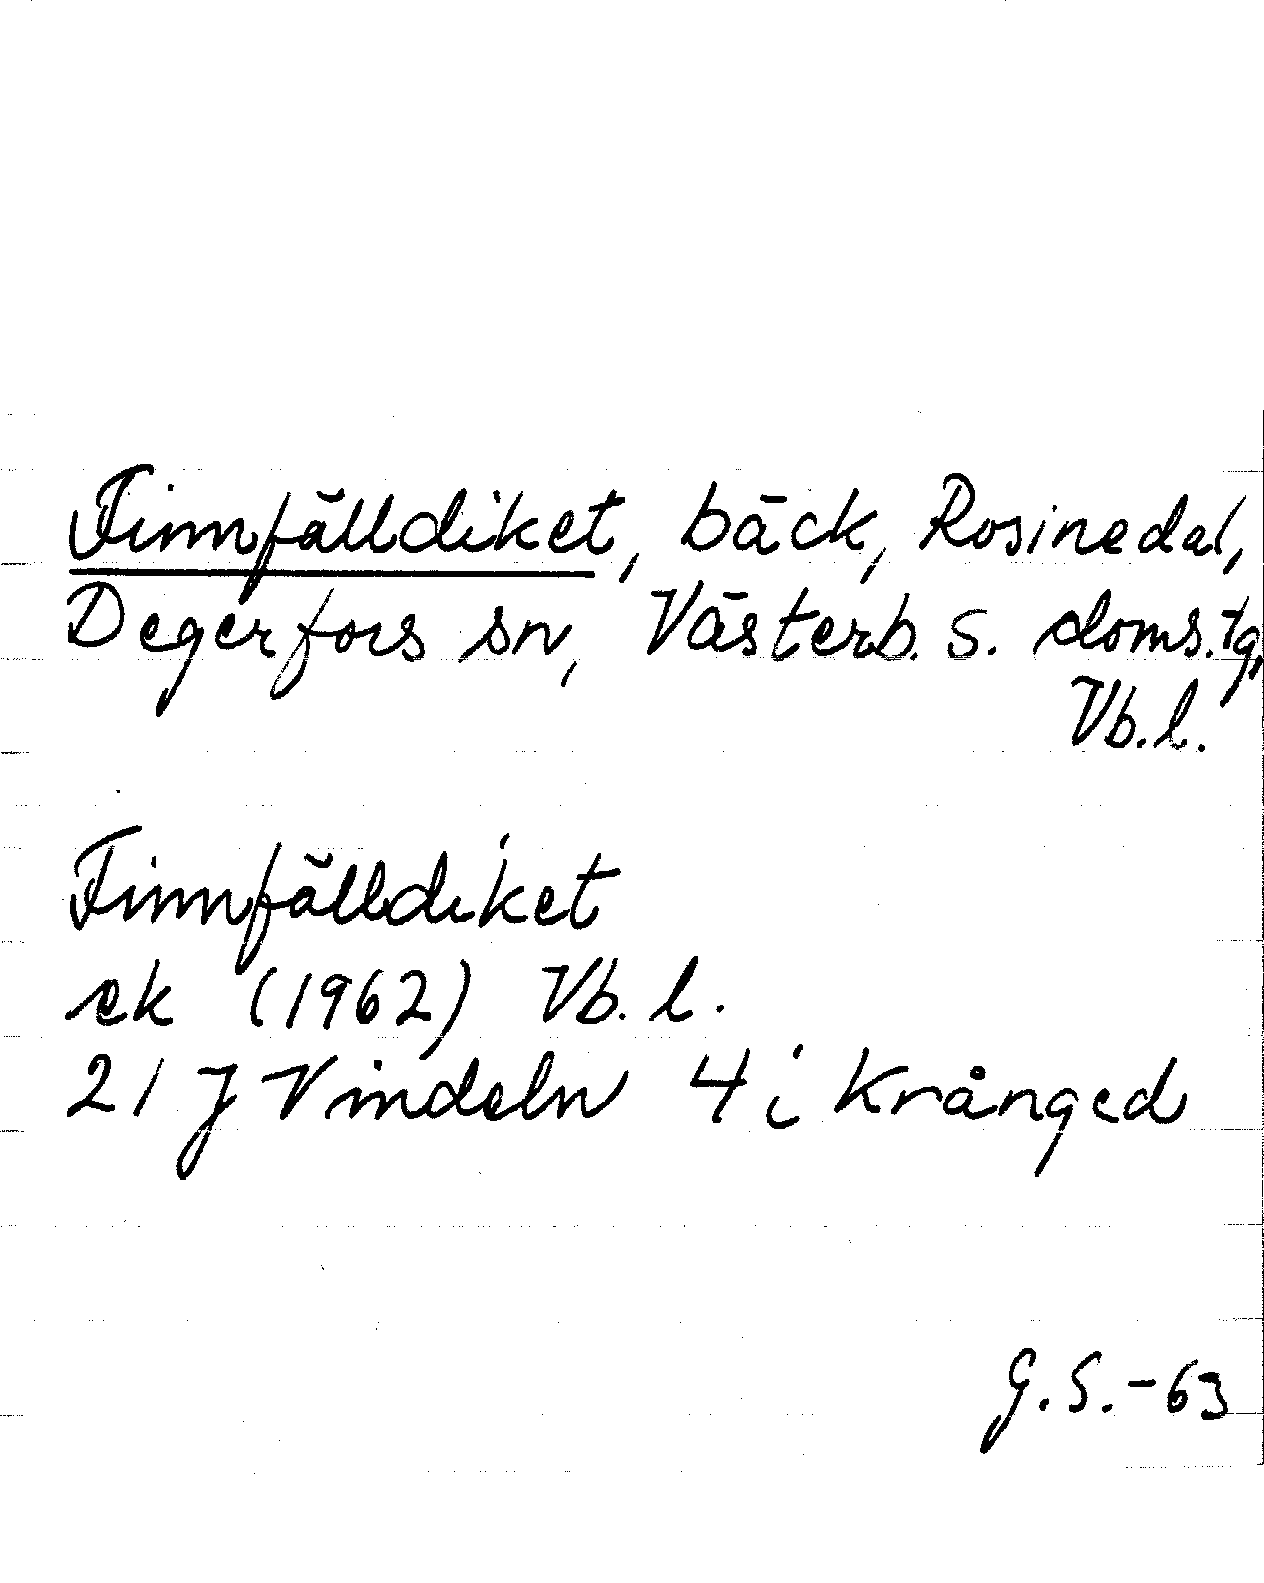 Finnfälldiket, bäck, Rosinedal,
Degerfors sn, Västerb. s. doms.tg,
Vb.l.
Finnfälldiket
ek (1962) Vb. l.
21 J Vindeln 4 i Krånged
G.S.-63